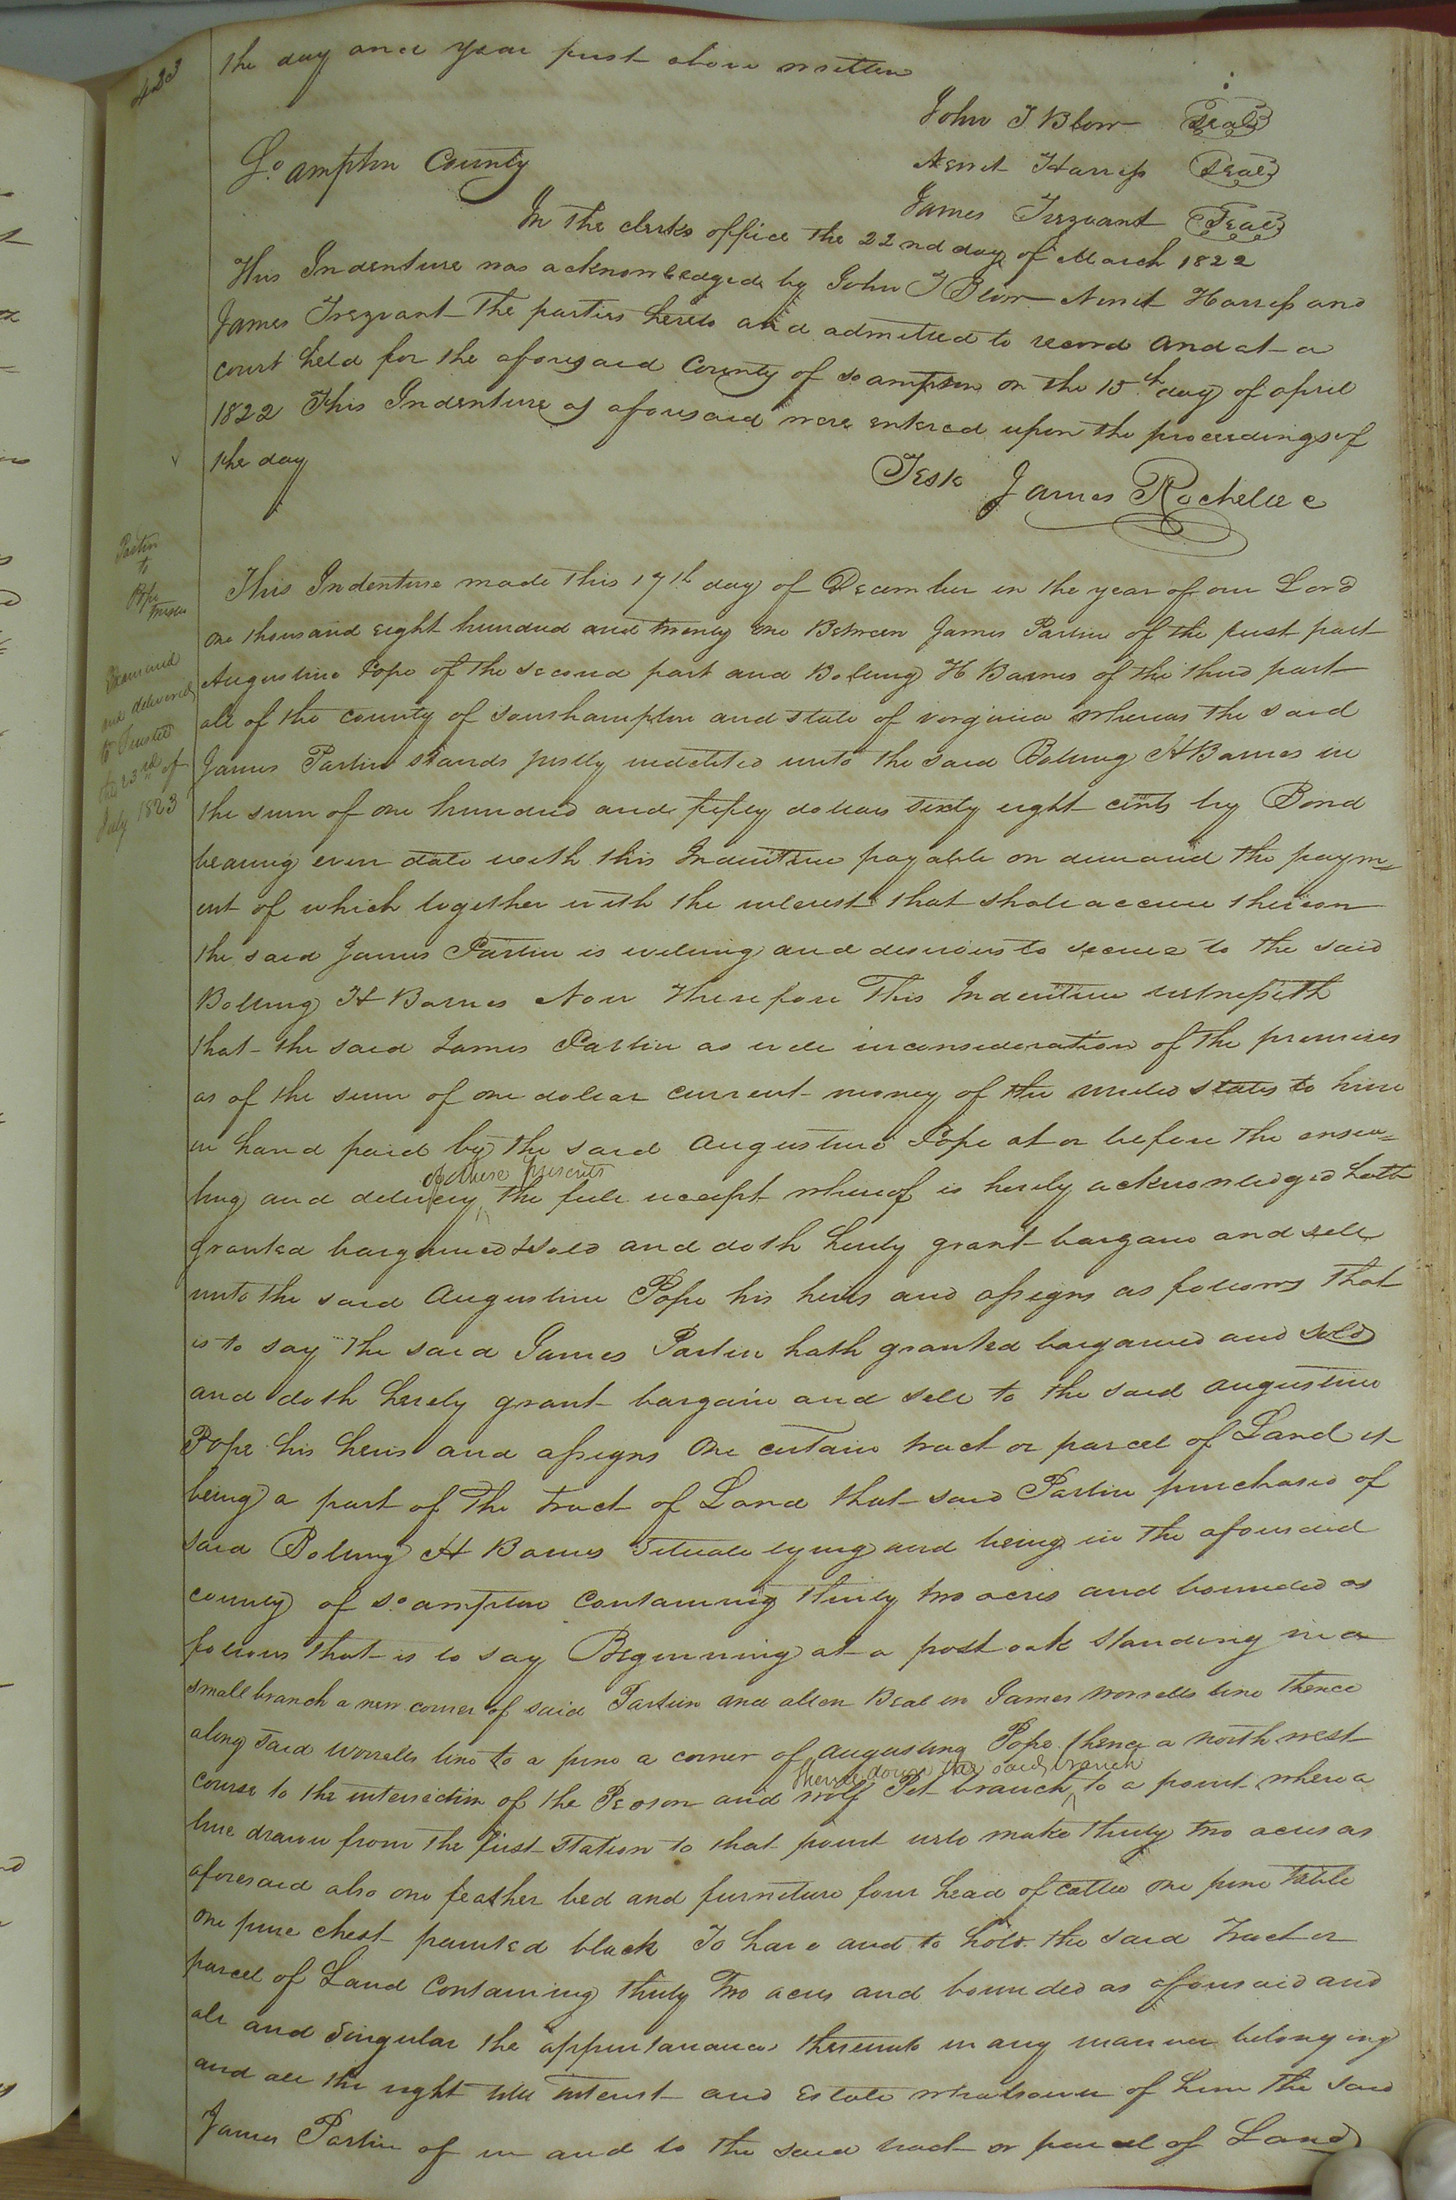 423
the day and year first above written
John T Blow Seal
Nemt Harriss Seal
James Trezvant Seal
So. ampton County
In the clerks office the 22nd day of March 1822
This Indenture was acknowledged by John T Blow Nemt Harriss and
James Trezvant The parties hereto and admitted to record and at a
court held for the aforesaid County of So ampton on the 15th day of april
1822 This Indenture as aforesaid were entered upon the proceedings of
the day
Test James Rochelle C
Partin
to
Pope
Trustee
Examined
and delivered
to Trustee
the 23rd of
July 1823
This Indenture made this 17th day of December in the year of our Lord
one thousand eight hundred and twenty one Between James Partin of the first part
Augustine Pope of the second part and Bolling H Barnes of the third part
all of the county of Southampton and state of virginia whereas the said
James Partin stands justly indebted unto the said Bolling H Barnes in
the sum of one hundred and fifty dollars sixty eight cents by Bond
bearing even date with this Indenture payable on demand the paym=
ent of which together with the interest that shall accrue thereon
the said James Partin is willing and desirous to secure to the said
Bolling H Barnes Now Therefore This Indenture witnesseth
that the said James Partin as well inconsideration of the premises
as of the sum of one dollar current money of the united states to him
in hand paid by the said Augustine Pope at or before the ensea=
ling and delivery of these presents the full receipt whereof is hereby acknowledged hath
granted bargained & sold and doth hereby grant bargain and sell
unto the said Augustine Pope his heirs and assigns as follows That
is to say The said James Partin hath granted bargained and sold
and doth hereby grant bargain and sell to the said Augustine
Pope his heirs and assigns One certain tract or parcel of Land it
being a part of The tract of Land that said Partin purchased of
said Bolling H Barnes Situate lying and being in the aforesaid
county of So. ampton Containing thirty two acres and bounded as
follows that is to say Beginning at a post oak standing in a
small branch a new corner of said Partin and allen Beal in James Worrells line thence
along said Worrells line to a pine a corner of Augustine Pope thence a north west
course to the intersection of the Peoson and Wolf Pit branch thence down the said branch to a point where a
line drawn from the first station to that point will make thirty two acres as
aforesaid also one feather bed and furniture four head of cattle one pine table
one pine chest painted black To have and to hold the said Tract or
parcel of Land Containing thirty Two acres and bounded as aforesaid and
all and Singular the appurtanances thereunto in any manner belonging
and all the right title interest and Estate whatsoever of him the said
James Partin of in and to the said tract or parcel of Land